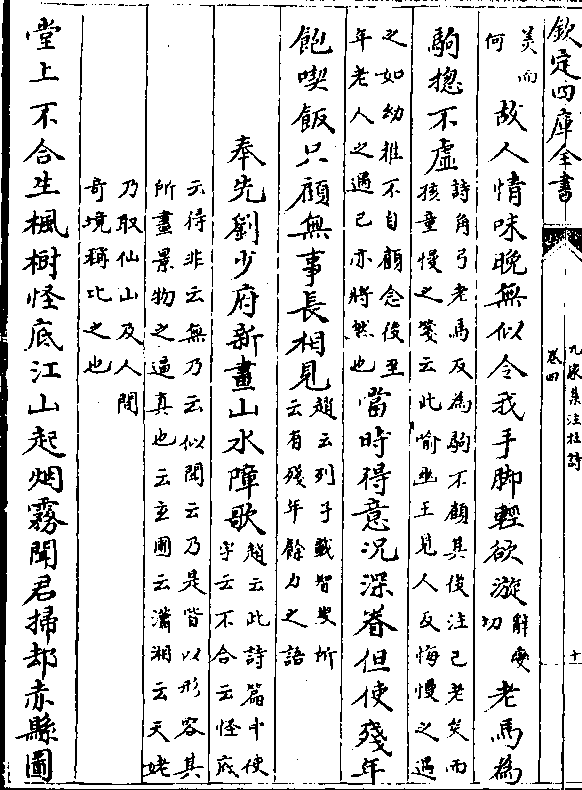 欽定四庫全書
九家集注杜詩
卷四
十
美而
何
故人情味晚無似令我手脚輕欲漩
辭變
切
老馬為
駒揔不虛
詩角弓老馬反為駒不顧其後注已老矣而
孩童慢之箋云此喻幽王見人反悔慢之遇
之如幼稚不自顧念後至
年老人之遇已亦將然也
當時得意況深眷但使殘年
飽喫飯只願無事長相見
趙云列子載智叟所
云有殘年餘力之語
奉先劉少府新畫山水障歌
趙云此詩篇中使
字云不合云怪底
云得非云無乃云似聞云乃是皆以形容其
所畫景物之逼真也云玄圃云瀟湘云天姥
乃取仙山及人間
奇境稱比之也
堂上不合生楓樹怪底江山起烟霧聞君掃却赤縣圖